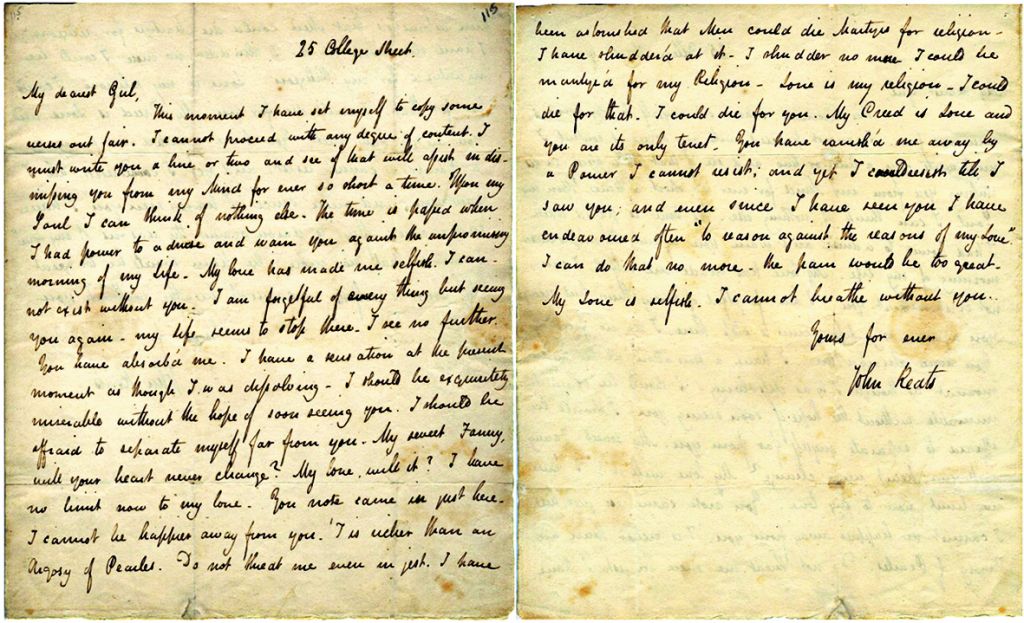 115
25 College Street.
My dearest Girl,
This moment I have set myself to copy some
verses out fair. I cannot proceed with any degree of content. I
must write you a line or two and see if that will assist in dis-
missing you from my Mind for ever so short a time. Upon my
Soul I can think of nothing else. The time is passed when
I had power to advise and warn you against the unpromising
morning of my Life - My love has made me selfish. I can-
not exist without you. I am forgetful of every thing but seeing
you again - my life seems to stop there - I see no further.
You have absorb'd me. I have a sensation at the present
moment as though I was dissolving - I should be exquisitely
miserable without the hope of soon seeing you. I should be
affraid to separate myself far from you. My sweet Fanny,
will your heart never change? My love, will it? I have
no limit now to my love - You note came in just here -
I cannot be happier away from you. 'T is richer than an
Argosy of Pearles. Do not threat me even in jest. I have
been astonished that Men could die Martyrs for religion -
I have shudder'd at it - I shudder no more I could be
martyr'd for my Religion - Love is my religion - I could
die for that. I could die for you. My Creed is Love and
you are its only tenet - You have ravish'd me away by
a Power I cannot resist; and yet I could resist till I
saw you; and even since I have seen you I have
endeavoured often "to reason against the reasons of my Love".
I can do that no more - the pain would be too great -
My Love is selfish. I cannot breathe without you.
Yours for ever
John Keats